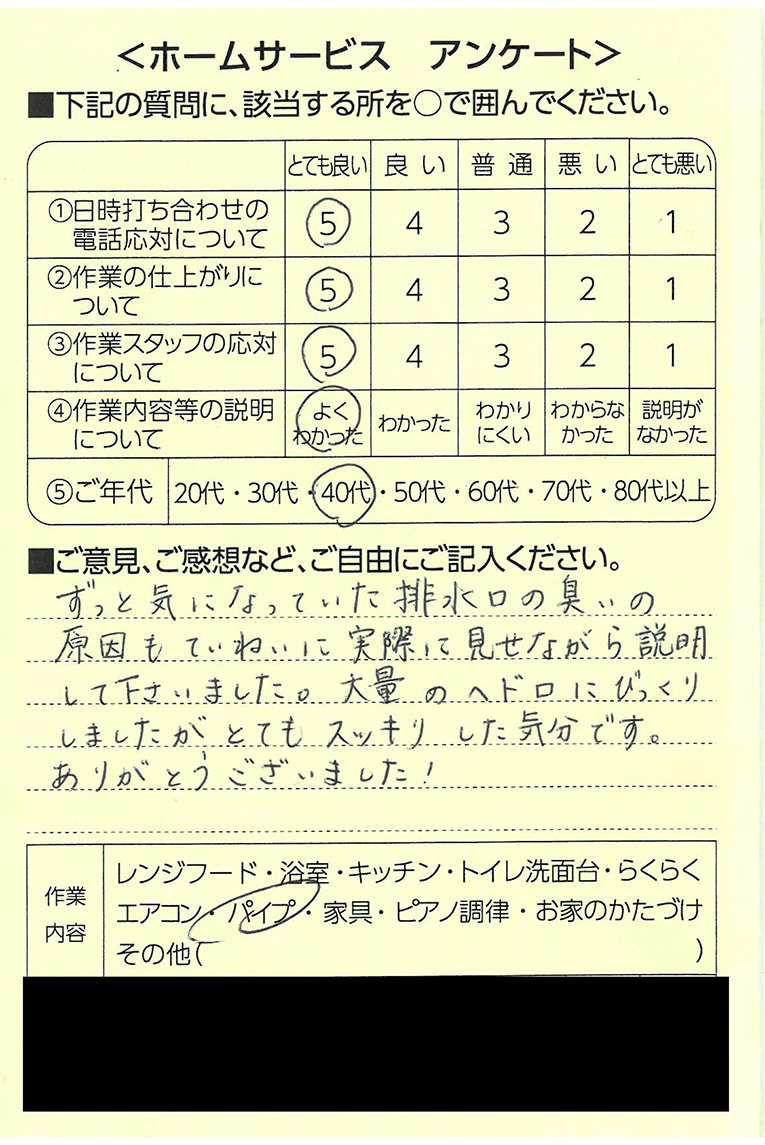 ＜ホームサービス　アンケート＞
■下記の質問に、該当する所を○で囲んでください。
とても良い 良い 普通 悪い とても悪い
①日時打ち合わせの
電話応対について 5 4 3 2 1
②作業の仕上がりに
ついて 5 4 3 2 1
③作業スタッフの応対
について 5 4 3 2 1
④作業内容等の説明
について よく
わかった わかった わかり
にくい わからな
かった 説明が
なかった
⑤ご年代 20代・30代・40代・50代・60代・70代・80代以上
■ご意見、ご感想など、ご自由にご記入ください。
ずっと気になっていた排水口の臭いの
原因もていねいに実際に見せながら説明
して下さいました。大量のヘドロにびっくり
しましたがとてもスッキリした気分です。
ありがとうございました！
作業
内容
レンジフード・浴室・キッチン・トイレ洗面台・らくらく
エアコン・パイプ・家具・ピアノ調律・お家のかたづけ
その他(　　　)